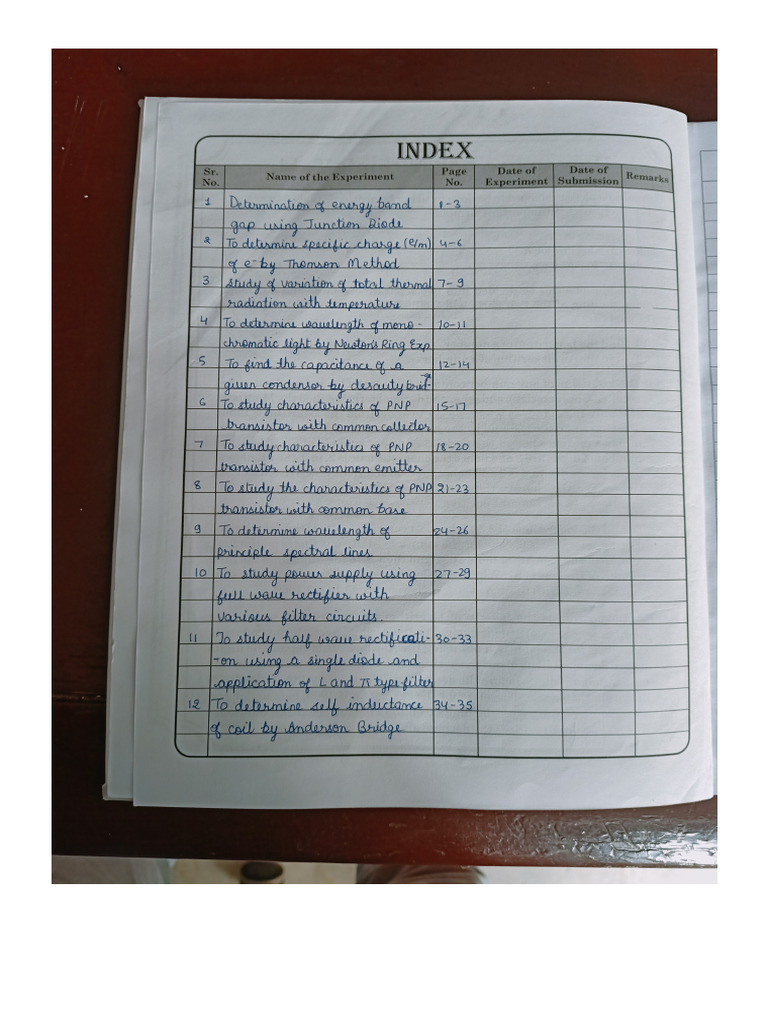 INDEX
Sr. No. Name of the Experiment Page No. Date of Experiment Date of Submission Remarks
1 Determination of energy band 1-3
gap using Junction Diode
2 To determine specific charge (e/m) 4-6
of e- by Thomson Method
3 study of variation of total thermal 7-9
radiation with temperature
4 To determine wavelength of mono- 10-11
chromatic light by Newton's Ring Exp.
5 To find the capacitance of a 12-14
given condensor by desauty brid-ge
6 To study characteristics of PNP 15-17
transistor with common collector
7 To study characteristics of PNP 18-20
transistor with common emitter
8 To study the characteristics of PNP 21-23
transistor with common base
9 To determine wavelength of 24-26
principle spectral lines
10 To study power supply using 27-29
full wave rectifier with
various filter circuits.
11 To study half wave rectificati- 30-33
-on using a single diode and
application of L and π type filter
12 To determine self inductance 34-35
of coil by Anderson Bridge